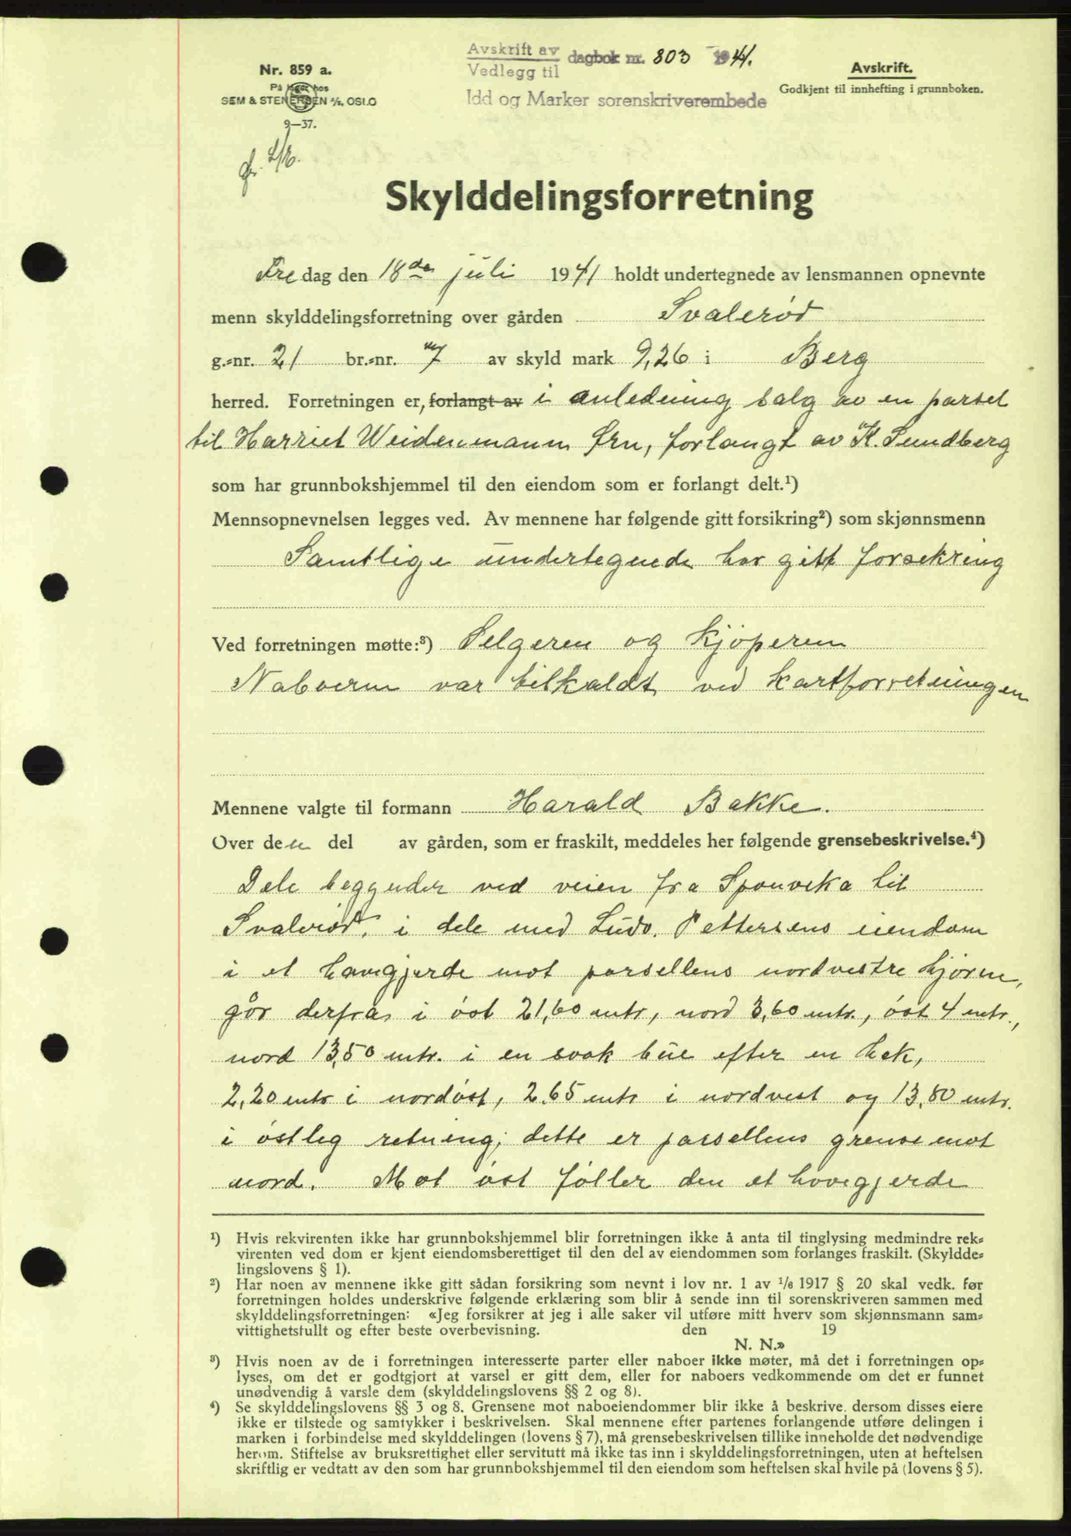 Nr. 859 a.
På lager hos
SEM & STENERSEN A/S, OSLO
9—37.
Avskrift av
Vedlegg til dagbok nr. 803 1941.
Idd og Marker sorenskriverembede
Avskrift.
Godkjent til innhefting i grunnboken.
Skylddelingsforretning
Fre dag den 18de juli 1941 holdt undertegnede av lensmannen opnevnte
menn skylddelingsforretning over gården Svalerød
g.=nr. 21 br.=nr. 7 av skyld mark 9,26 i Berg
herred. Forretningen er, forlangt av i anledning salg av en parsel
til Harriet Weidenmann Ørn, forlangt av K. Sundberg
som har grunnbokshjemmel til den eiendom som er forlangt delt.¹)
Mennsopnevnelsen legges ved. Av mennene har følgende gitt forsikring²) som skjønnsmenn
Samtlige undertegnede har gitt forsekring
Ved forretningen møtte:³) Selgeren og kjöperen
Naboerne var tilkaldt ved kartforretningen
Mennene valgte til formann Harald Bakke.
Over den del av gården, som er fraskilt, meddeles her følgende grensebeskrivelse.⁴)
Dele beggynder ved veien fra Sponvika til
Svalerød, i dele med Ludv. Pettersens eiendom
i et havegjerde mot parsellens nordvestre hjørne,
går derfra i öst 21,60 mtr, nord 3,60 mtr., öst 4 mtr.,
nord 13,50 mtr. i en svak bue efter en hek,
2,20 mtr i nordöst, 2,65 mtr i nordvest og 13,80 mtr.
i östleg retning; dette er parsellens grense mot
nord. Mot öst föller den et havegjerde
¹) Hvis rekvirenten ikke har grunnbokshjemmel blir forretningen ikke å anta til tinglysing medmindre rek=
virenten ved dom er kjent eiendomsberettiget til den del av eiendommen som forlanges fraskilt. (Skyldde=
lingslovens § 1).
²) Har noen av mennene ikke gitt sådan forsikring som nevnt i lov nr. 1 av ¹/₆ 1917 § 20 skal vedk. før
forretningen holdes underskrive følgende erklæring som blir å sende inn til sorenskriveren sammen med
skylddelingsforretningen: «Jeg forsikrer at jeg i alle saker vil utføre mitt hverv som skjønnsmann sam=
vittighetsfullt og efter beste overbevisning. den 19
N. N.»
³) Hvis noen av de i forretningen interesserte parter eller naboer ikke møter, må det i forretningen op=
lyses, om det er godtgjort at varsel er gitt dem, eller for naboers vedkommende om det er funnet
unødvendig å varsle dem (skylddelingslovens §§ 2 og 8).
⁴) Se skylddelingslovens §§ 3 og 8. Grensene mot naboeiendommer blir ikke å beskrive, dersom disses eiere
ikke er tilstede og samtykker i beskrivelsen. Skal mennene efter partenes forlangende utføre delingen i
marken i forbindelse med skylddelingen (lovens § 7), må grensebeskrivelsen tillike inneholde det nødvendige
herom. Stiftelse av bruksrettighet eller servitutt må ikke tas inn i skylddelingsforretningen, uten at heftelsen
skriftlig er vedtatt av den som har grunnbokshjemmel til den eiendom som heftelsen skal hvile på (lovens § 5).